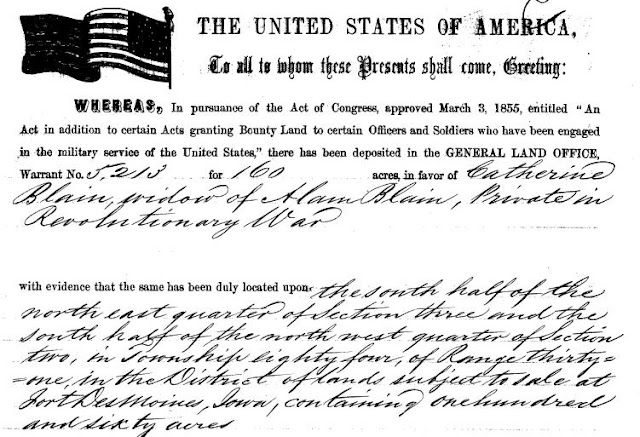 THE UNITED STATES OF AMERICA,
To all to whom these Presents shall come, Greeting:
WHEREAS, In pursuance of the Act of Congress, approved March 3, 1855, entitled "An
Act in addition to certain Acts granting Bounty Land to certain Officers and Soldiers who have been engaged
in the military service of the United States," there has been deposited in the GENERAL LAND OFFICE,
Warrant No. 5,213 for 160 acres, in favor of Catherine
Blain, widow of Alam Blain, Private in
Revolutionary War
with evidence that the same has been duly located upon the south half of the
north east quarter of Section three and the
south half of the north west quarter of Section
two, in Township eighty four, of Range thirty=
=one, in the District of lands subject to sale at
Fort Des Moines, Iowa, containing one hundred
and sixty acres